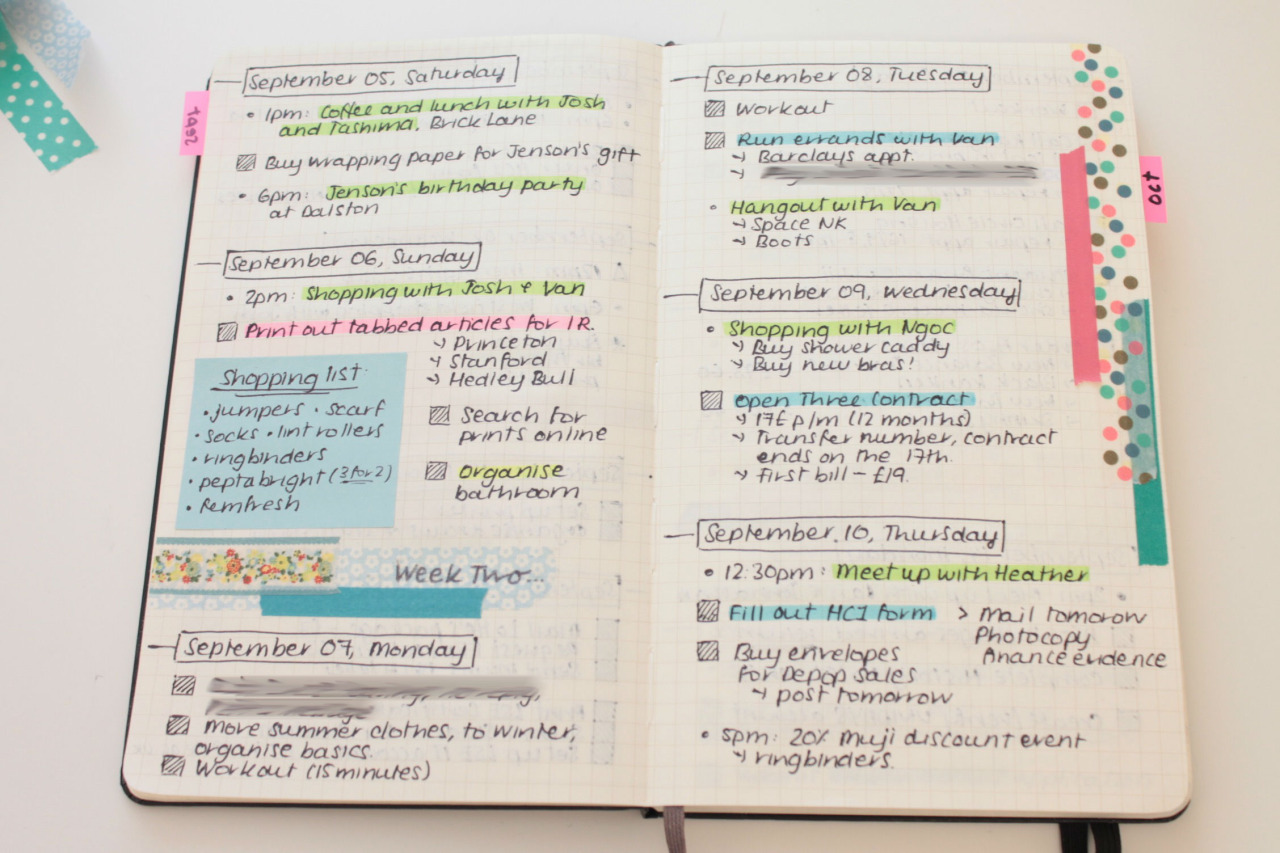 September 05, Saturday
• 1pm: Coffee and lunch with Josh
and Tashima, Brick Lane
Buy wrapping paper for Jenson's gift
• 6pm: Jenson's birthday party
at Dalston
September 06, Sunday
• 2pm: Shopping with Josh + Van
Print out tabbed articles for IR.
→ Princeton
→ Stanford
→ Hedley Bull
Search for
prints online
Organise
bathroom
Shopping list
• jumpers • scarf
• socks • lint rollers
• ringbinders
• peptabright (3 for 2)
• Remfresh
Week Two...
September 07, Monday
Move summer clothes, to winter,
organise basics.
Workout (15 minutes)
September 08, Tuesday
Workout
Run errands with Van
→ Barclays appt.
→
• Hangout with Van
→ Space NK
→ Boots
September 09, Wednesday
• Shopping with Ngoc
→ Buy shower caddy
→ Buy new bras!
Open Three Contract
→ 17£ p/m (12 months)
→ Transfer number, contract
ends on the 17th.
→ First bill – £19.
September 10, Thursday
• 12:30pm: Meet up with Heather
Fill out HC1 form > Mail tomorow
Photocopy
finance evidence
Buy envelopes
for Depop sales
→ post tomorrow
• 5pm: 20% Muji discount event
→ ringbinders.
Oct